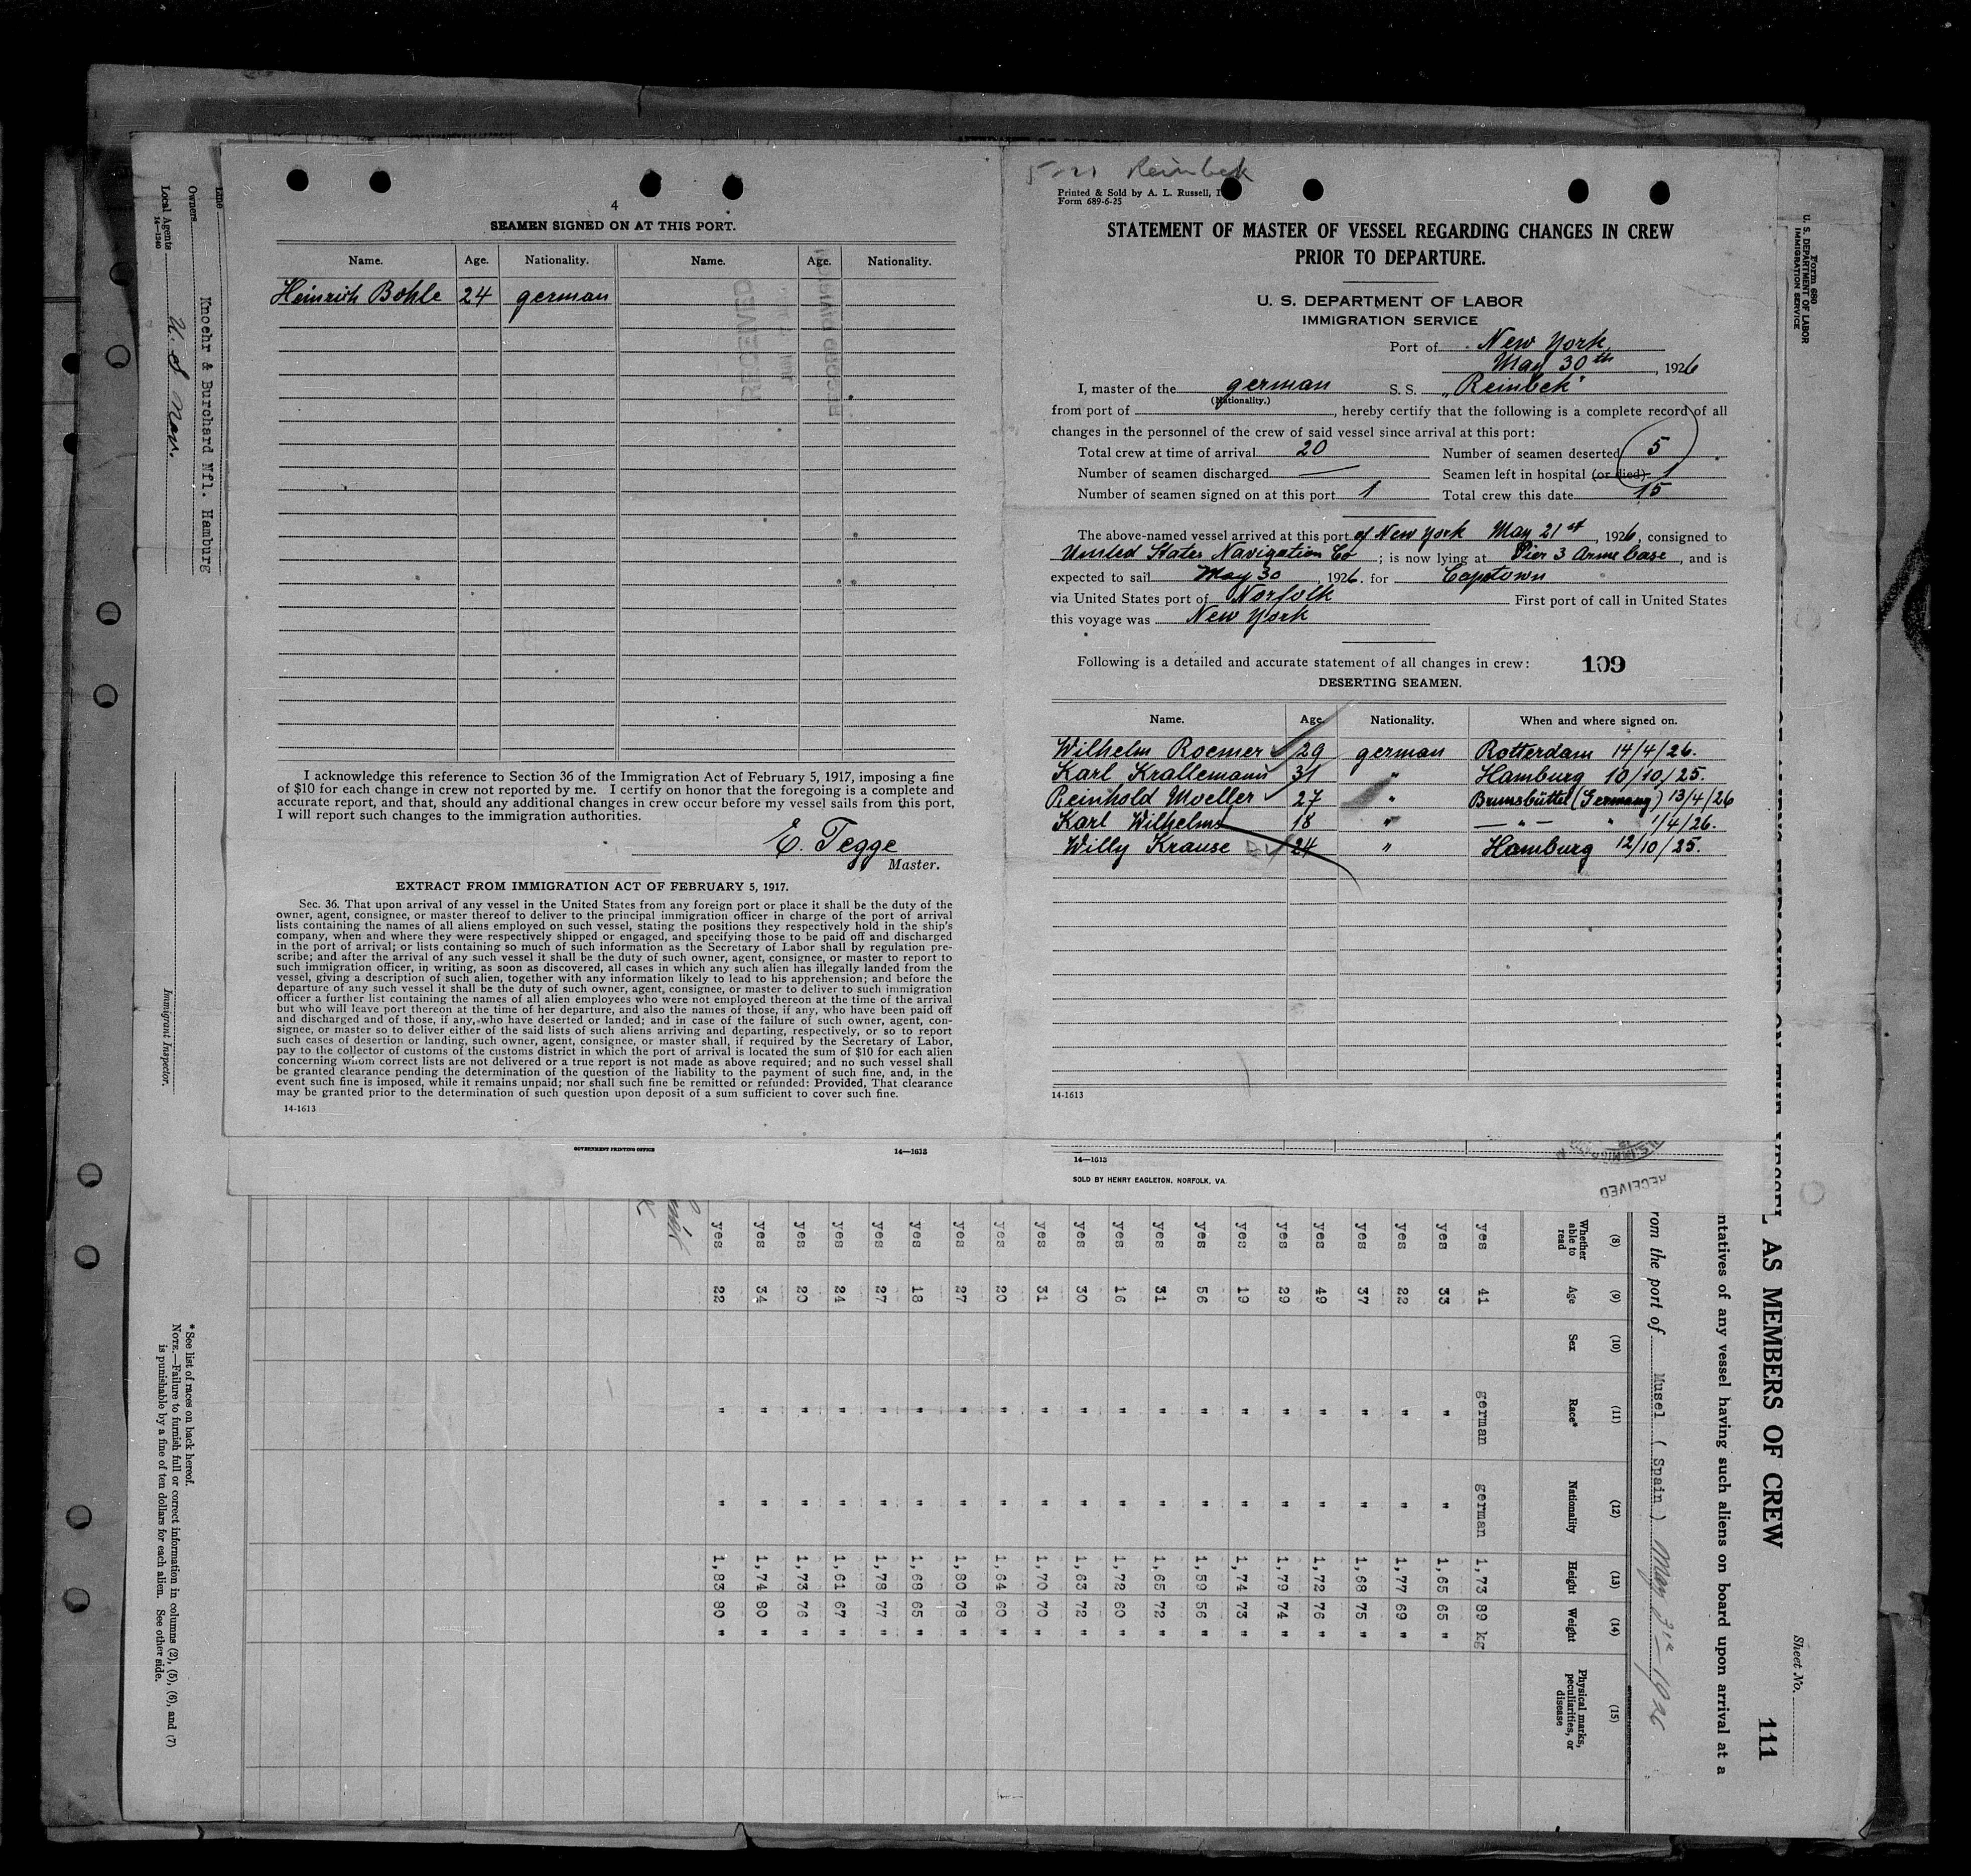 4
SEAMEN SIGNED ON AT THIS PORT.
Name. Age. Nationality. Name. Age. Nationality.
Heinrich Bohle 24 german
RECEIVED
I acknowledge this reference to Section 36 of the Immigration Act of February 5, 1917, imposing a fine
of $10 for each change in crew not reported by me. I certify on honor that the foregoing is a complete and
accurate report, and that, should any additional changes in crew occur before my vessel sails from this port,
I will report such changes to the immigration authorities.
E. Tegge
Master.
EXTRACT FROM IMMIGRATION ACT OF FEBRUARY 5, 1917.
Sec. 36. That upon arrival of any vessel in the United States from any foreign port or place it shall be the duty of the
owner, agent, consignee, or master thereof to deliver to the principal immigration officer in charge of the port of arrival
lists containing the names of all aliens employed on such vessel, stating the positions they respectively hold in the ship's
company, when and where they were respectively shipped or engaged, and specifying those to be paid off and discharged
in the port of arrival; or lists containing so much of such information as the Secretary of Labor shall by regulation pre-
scribe; and after the arrival of any such vessel it shall be the duty of such owner, agent, consignee, or master to report to
such immigration officer, in writing, as soon as discovered, all cases in which any such alien has illegally landed from the
vessel, giving a description of such alien, together with any information likely to lead to his apprehension; and before the
departure of any such vessel it shall be the duty of such owner, agent, consignee, or master to deliver to such immigration
officer a further list containing the names of all alien employees who were not employed thereon at the time of the arrival
but who will leave port thereon at the time of her departure, and also the names of those, if any, who have been paid off
and discharged and of those, if any, who have deserted or landed; and in case of the failure of such owner, agent, con-
signee, or master so to deliver either of the said lists of such aliens arriving and departing, respectively, or so to report
such cases of desertion or landing, such owner, agent, consignee, or master shall, if required by the Secretary of Labor,
pay to the collector of customs of the customs district in which the port of arrival is located the sum of $10 for each alien
concerning whom correct lists are not delivered or a true report is not made as above required; and no such vessel shall
be granted clearance pending the determination of the question of the liability to the payment of such fine, and, in the
event such fine is imposed, while it remains unpaid; nor shall such fine be remitted or refunded: Provided, That clearance
may be granted prior to the determination of such question upon deposit of a sum sufficient to cover such fine.
14-1613
Reinbek
Printed & Sold by A. L. Russell,
Form 689-6-25
STATEMENT OF MASTER OF VESSEL REGARDING CHANGES IN CREW
PRIOR TO DEPARTURE.
U. S. DEPARTMENT OF LABOR
IMMIGRATION SERVICE
Port of New York,
May 30th, 1926
I, master of the german S. S. „Reinbek"
(Nationality.)
from port of , hereby certify that the following is a complete record of all
changes in the personnel of the crew of said vessel since arrival at this port:
Total crew at time of arrival 20 Number of seamen deserted 5
Number of seamen discharged — Seamen left in hospital (or died) 1
Number of seamen signed on at this port 1 Total crew this date 15
The above-named vessel arrived at this port of New York May 21st, 1926, consigned to
United States Navigation Co ; is now lying at Pier 3 Arme base, and is
expected to sail May 30, 1926. for Capetown
via United States port of Norfolk First port of call in United States
this voyage was New York
Following is a detailed and accurate statement of all changes in crew: 109
DESERTING SEAMEN.
Name. Age. Nationality. When and where signed on.
Wilhelm Roemer 29 german Rotterdam 14/4/26.
Karl Krallemann 31 " Hamburg 10/10/25.
Reinhold Moeller 27 " Brunsbüttel (Germany) 13/4/26
Karl Wilhelms 18 " — " — " 1/4/26.
Willy Krause 24 " Hamburg 12/10/25.
14-1613
GOVERNMENT PRINTING OFFICE 14—1613
14—1613
SOLD BY HENRY EAGLETON, NORFOLK, VA.
RECEIVED
Form 680
U. S. DEPARTMENT OF LABOR
IMMIGRATION SERVICE
Sheet No.
111
AS MEMBERS OF CREW
ntatives of any vessel having such aliens on board upon arrival at a
rom the port of Musel ( Spain ) May 3rd 1926
(8) (9) (10) (11) (12) (13) (14) (15)
Whether able to read Age Sex Race* Nationality Height Weight Physical marks, peculiarities, or disease
yes 41 german german 1,73 89 kg
yes 33 " " 1,65 65 "
yes 22 " " 1,77 69 "
yes 37 " " 1,68 75 "
yes 49 " " 1,72 76 "
yes 29 " " 1,79 74 "
yes 19 " " 1,74 73 "
yes 56 " " 1,59 56 "
yes 31 " " 1,65 72 "
yes 16 " " 1,72 60 "
yes 30 " " 1,63 72 "
yes 31 " " 1,70 70 "
yes 20 " " 1,64 60 "
yes 27 " " 1,80 78 "
yes 18 " " 1,68 65 "
yes 27 " " 1,78 77 "
yes 24 " " 1,61 67 "
yes 20 " " 1,73 76 "
yes 34 " " 1,74 80 "
yes 22 " " 1,83 80 "
Owners Knoehr & Burchard Nfl. Hamburg
Local Agents U. S. Nav.
14—1240
Immigrant Inspector.
* See list of races on back hereof.
NOTE.—Failure to furnish full or correct information in columns (2), (5), (6), and (7)
is punishable by a fine of ten dollars for each alien. See other side.